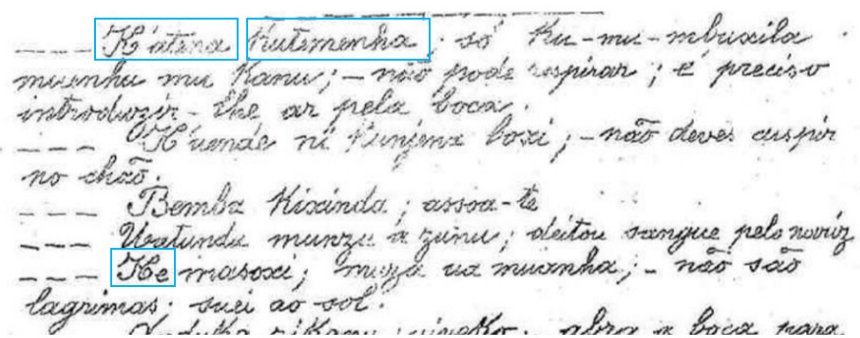 --- K'atena kutemenha; só ku-mu-mbuxila
muanhu mu kanu; - não pode respirar; é preciso
introduzir-lhe ar pela boca.
--- K'uende ni kunjena boxi; - não deves cuspir
no chão.
--- Bemba kixinda; assoa-te
--- Uatunda munza a zunu; deitou sangue pelo nariz
--- Ke masoxi; muza ua muanha; - não são
lagrimas; suei ao sol.
kanu abra a boca para